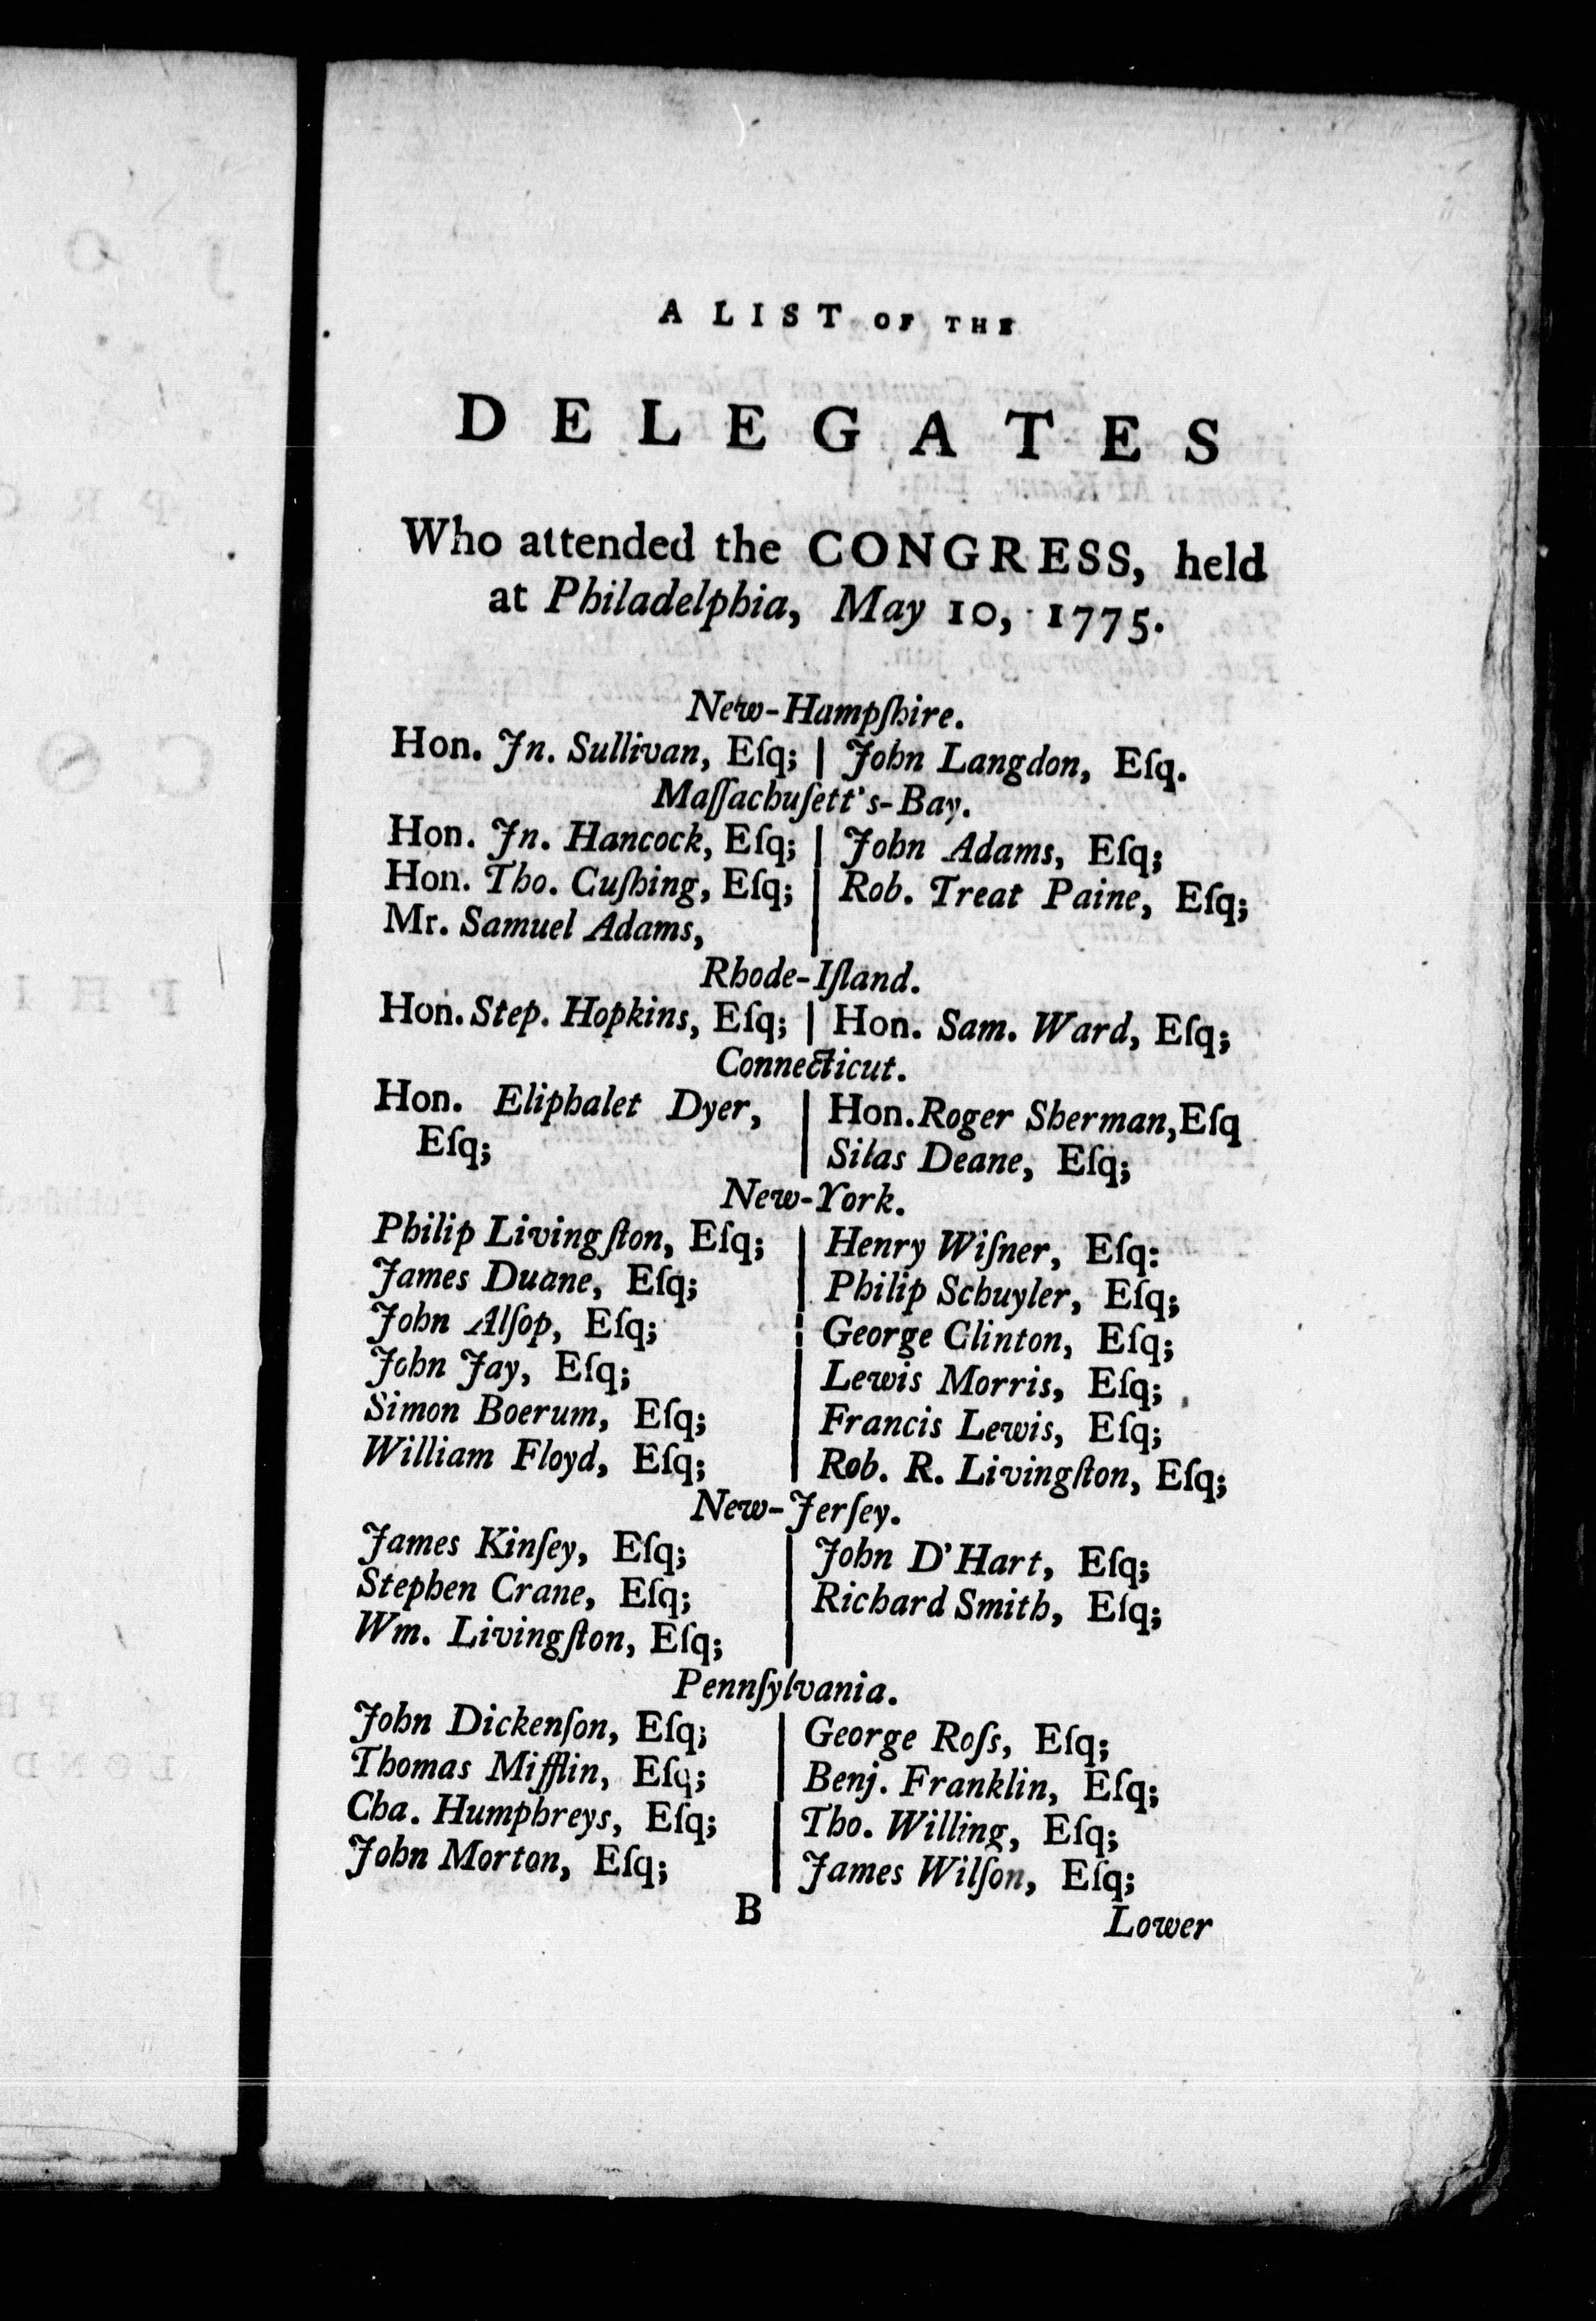 A LIST OF THE
DELEGATES
Who attended the CONGRESS, held
at Philadelphia, May 10, 1775.
New-Hampſhire.
Hon. Jn. Sullivan, Eſq; | John Langdon, Eſq.
Maſſachuſett's-Bay.
Hon. Jn. Hancock, Eſq; | John Adams, Eſq;
Hon. Tho. Cuſhing, Eſq; | Rob. Treat Paine, Eſq;
Mr. Samuel Adams,
Rhode-Iſland.
Hon. Step. Hopkins, Eſq; | Hon. Sam. Ward, Eſq;
Connecticut.
Hon. Eliphalet Dyer, | Hon. Roger Sherman, Eſq
Eſq; | Silas Deane, Eſq;
New-York.
Philip Livingſton, Eſq; | Henry Wiſner, Eſq:
James Duane, Eſq; | Philip Schuyler, Eſq;
John Alſop, Eſq; | George Clinton, Eſq;
John Jay, Eſq; | Lewis Morris, Eſq;
Simon Boerum, Eſq; | Francis Lewis, Eſq;
William Floyd, Eſq; | Rob. R. Livingſton, Eſq;
New-Jerſey.
James Kinſey, Eſq; | John D'Hart, Eſq;
Stephen Crane, Eſq; | Richard Smith, Eſq;
Wm. Livingſton, Eſq;
Pennſylvania.
John Dickenſon, Eſq; | George Roſs, Eſq;
Thomas Mifflin, Eſq; | Benj. Franklin, Eſq;
Cha. Humphreys, Eſq; | Tho. Willing, Eſq;
John Morton, Eſq; | James Wilſon, Eſq;
B
Lower